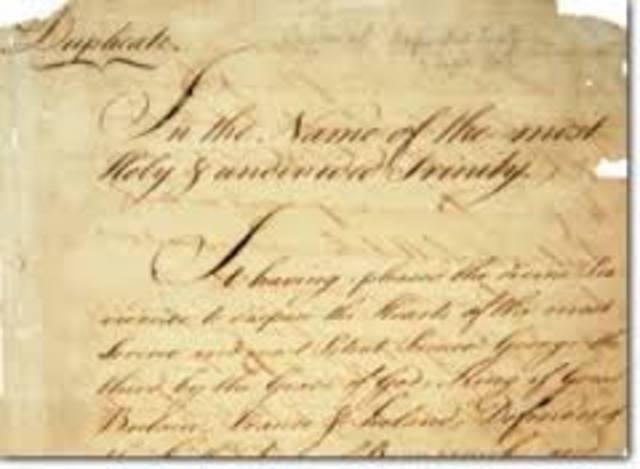 Duplicate.
In the Name of the most
Holy & undivided Trinity.
It having pleased the divine Pro
vidence to dispose the Hearts of the most
Serene and most Potent Prince George the
third, by the Grace of God, King of Great
Britain, France & Ireland, Defender of